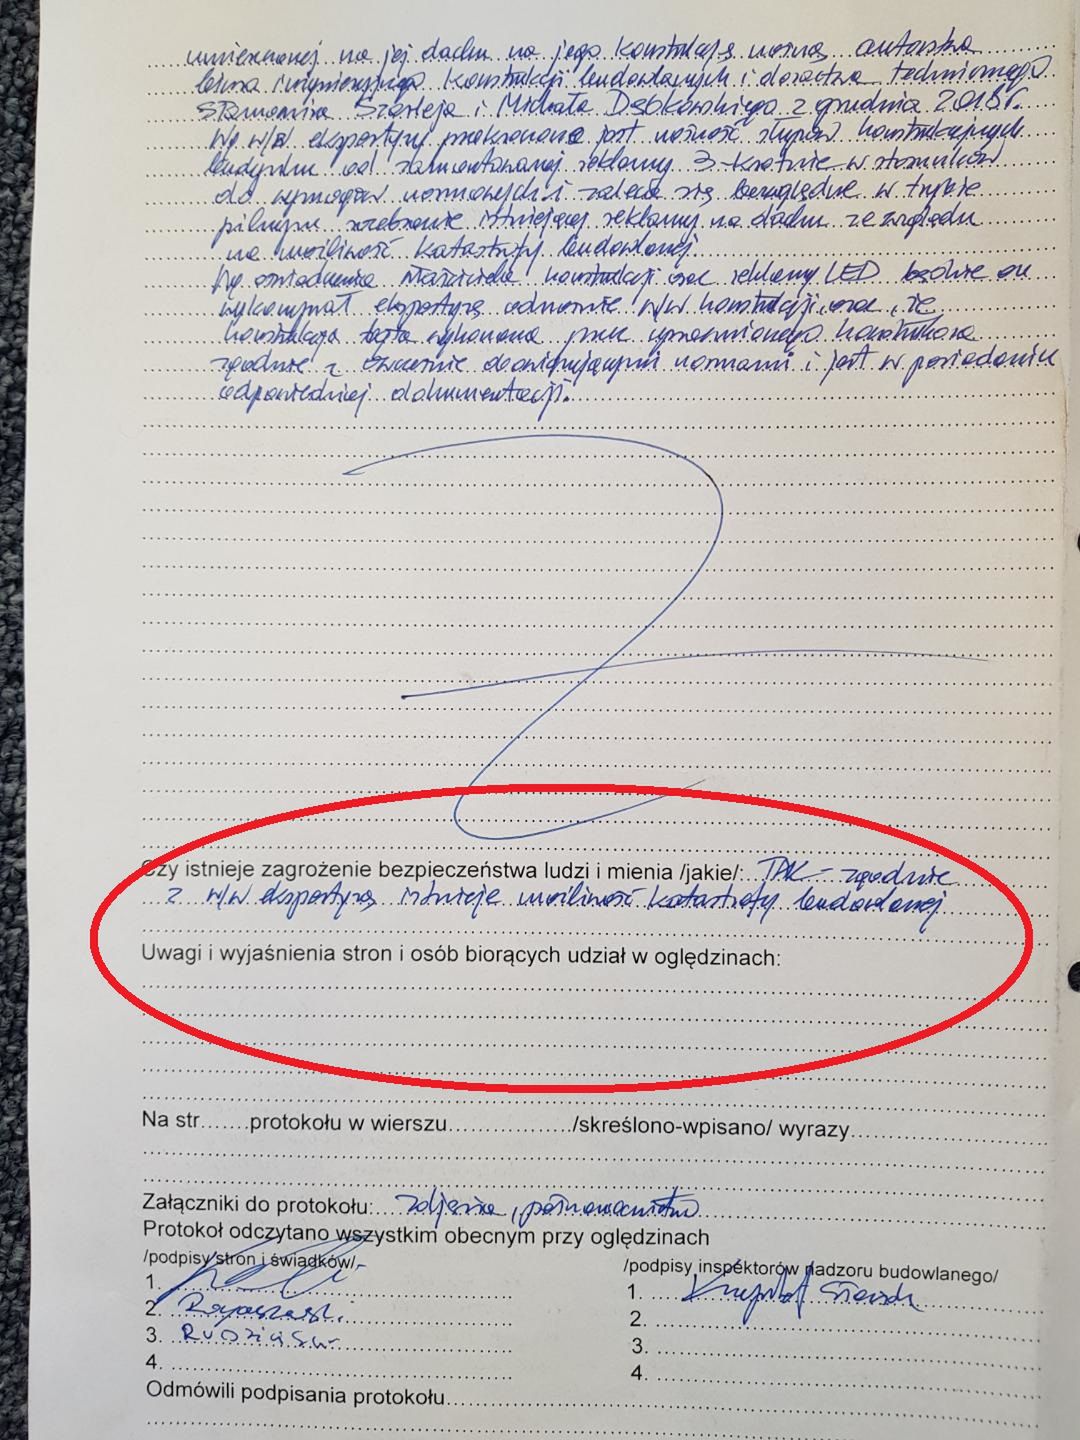 umieszczonej na jej dachu na jego konstrukcję nośną autorstwa
konstrukcji budowlanych i doradztwa technicznego
Sławomira i Michała Dąbkowskiego z grudnia 2018r.
Wg w/w ekspertyzy przekroczona jest nośność słupów konstrukcyjnych
budynku od zamontowanej reklamy 3-krotnie w stosunku
do wymogów normowych i zaleca się bezwzględne w trybie
pilnym rozebranie istniejącej reklamy na dachu ze względu
na możliwość katastrofy budowlanej.
Wg oświadczenia właściciela konstrukcji oraz reklamy LED będzie on
wykonywał ekspertyzę odnośnie w/w konstrukcji, oraz, że
konstrukcja była wykonana przez uprawnionego
zgodnie z ówcześnie obowiązującymi normami i jest w posiadaniu
odpowiedniej dokumentacji.
Czy istnieje zagrożenie bezpieczeństwa ludzi i mienia /jakie/: TAK - zgodnie
z w/w ekspertyzą istnieje możliwość katastrofy budowlanej
Uwagi i wyjaśnienia stron i osób biorących udział w oględzinach:
Na str.......protokołu w wierszu................../skreślono-wpisano/ wyrazy
Załączniki do protokołu: zdjęcia, pełnomocnictwo
Protokoł odczytano wszystkim obecnym przy oględzinach
/podpisy stron i świadków/
1.
2.
3.
4.
/podpisy inspektorów nadzoru budowlanego/
1. Krzysztof
2.
3.
4.
Odmówili podpisania protokołu